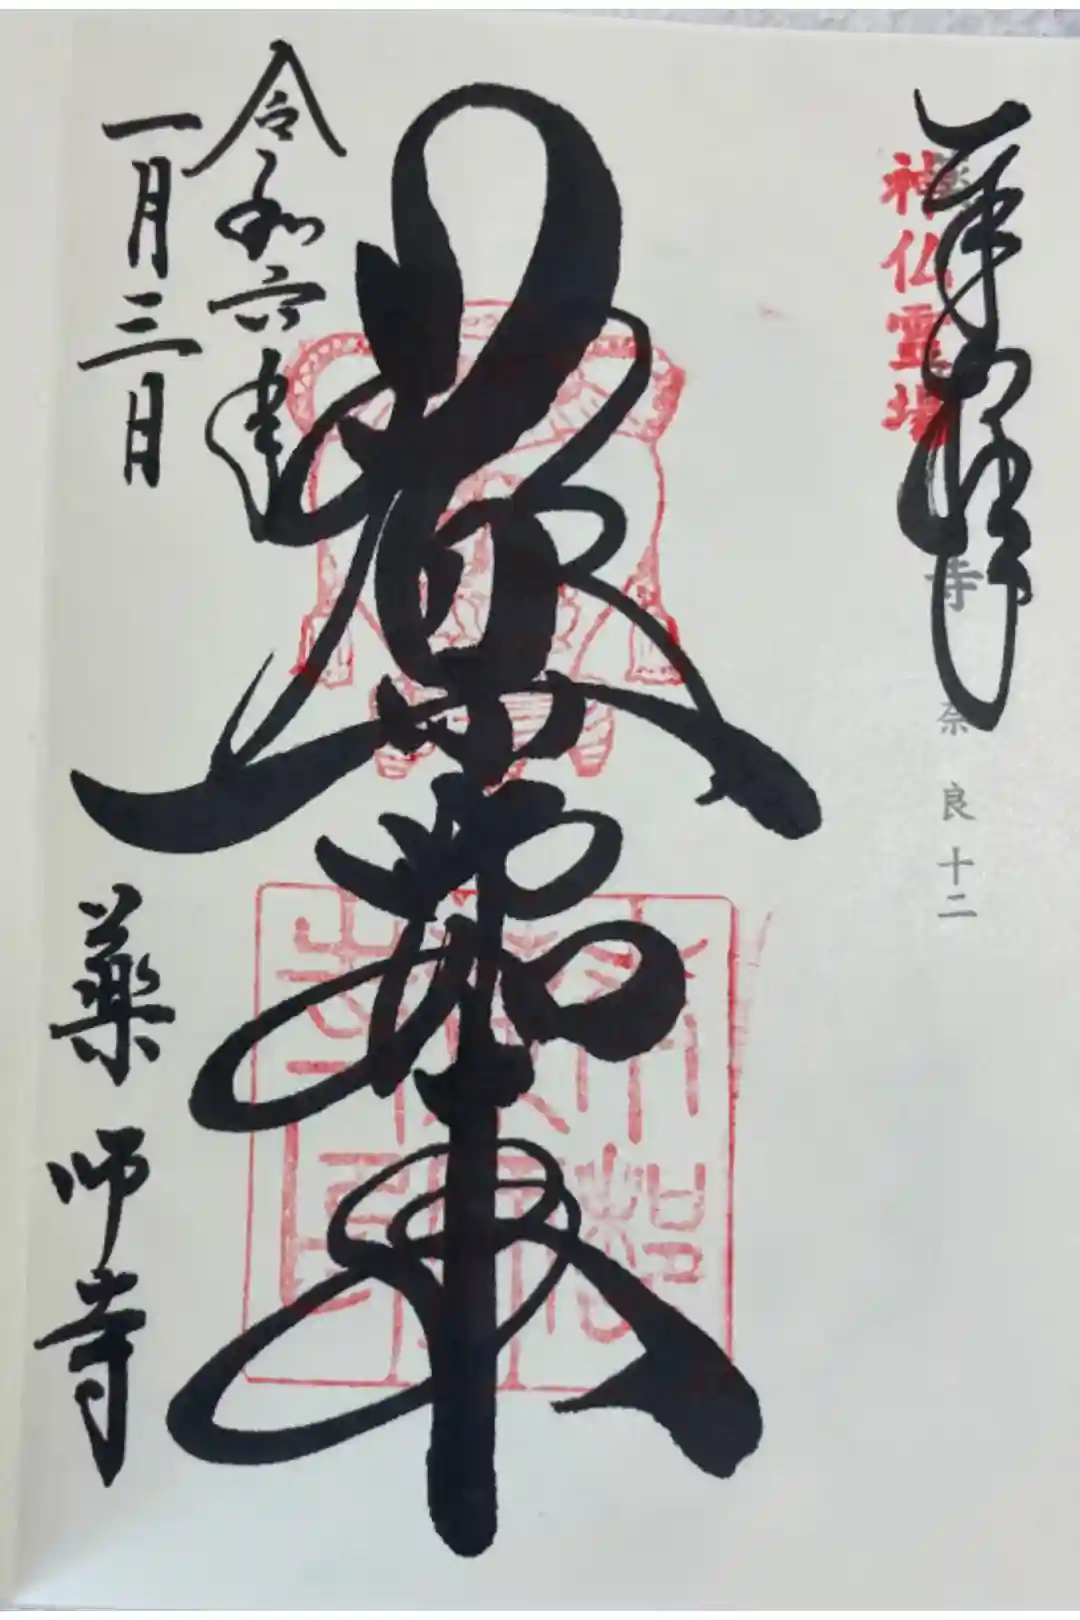 奉拝
神仏霊場
寺 奈良十二
薬師如来
令和六年
一月三日
薬師寺